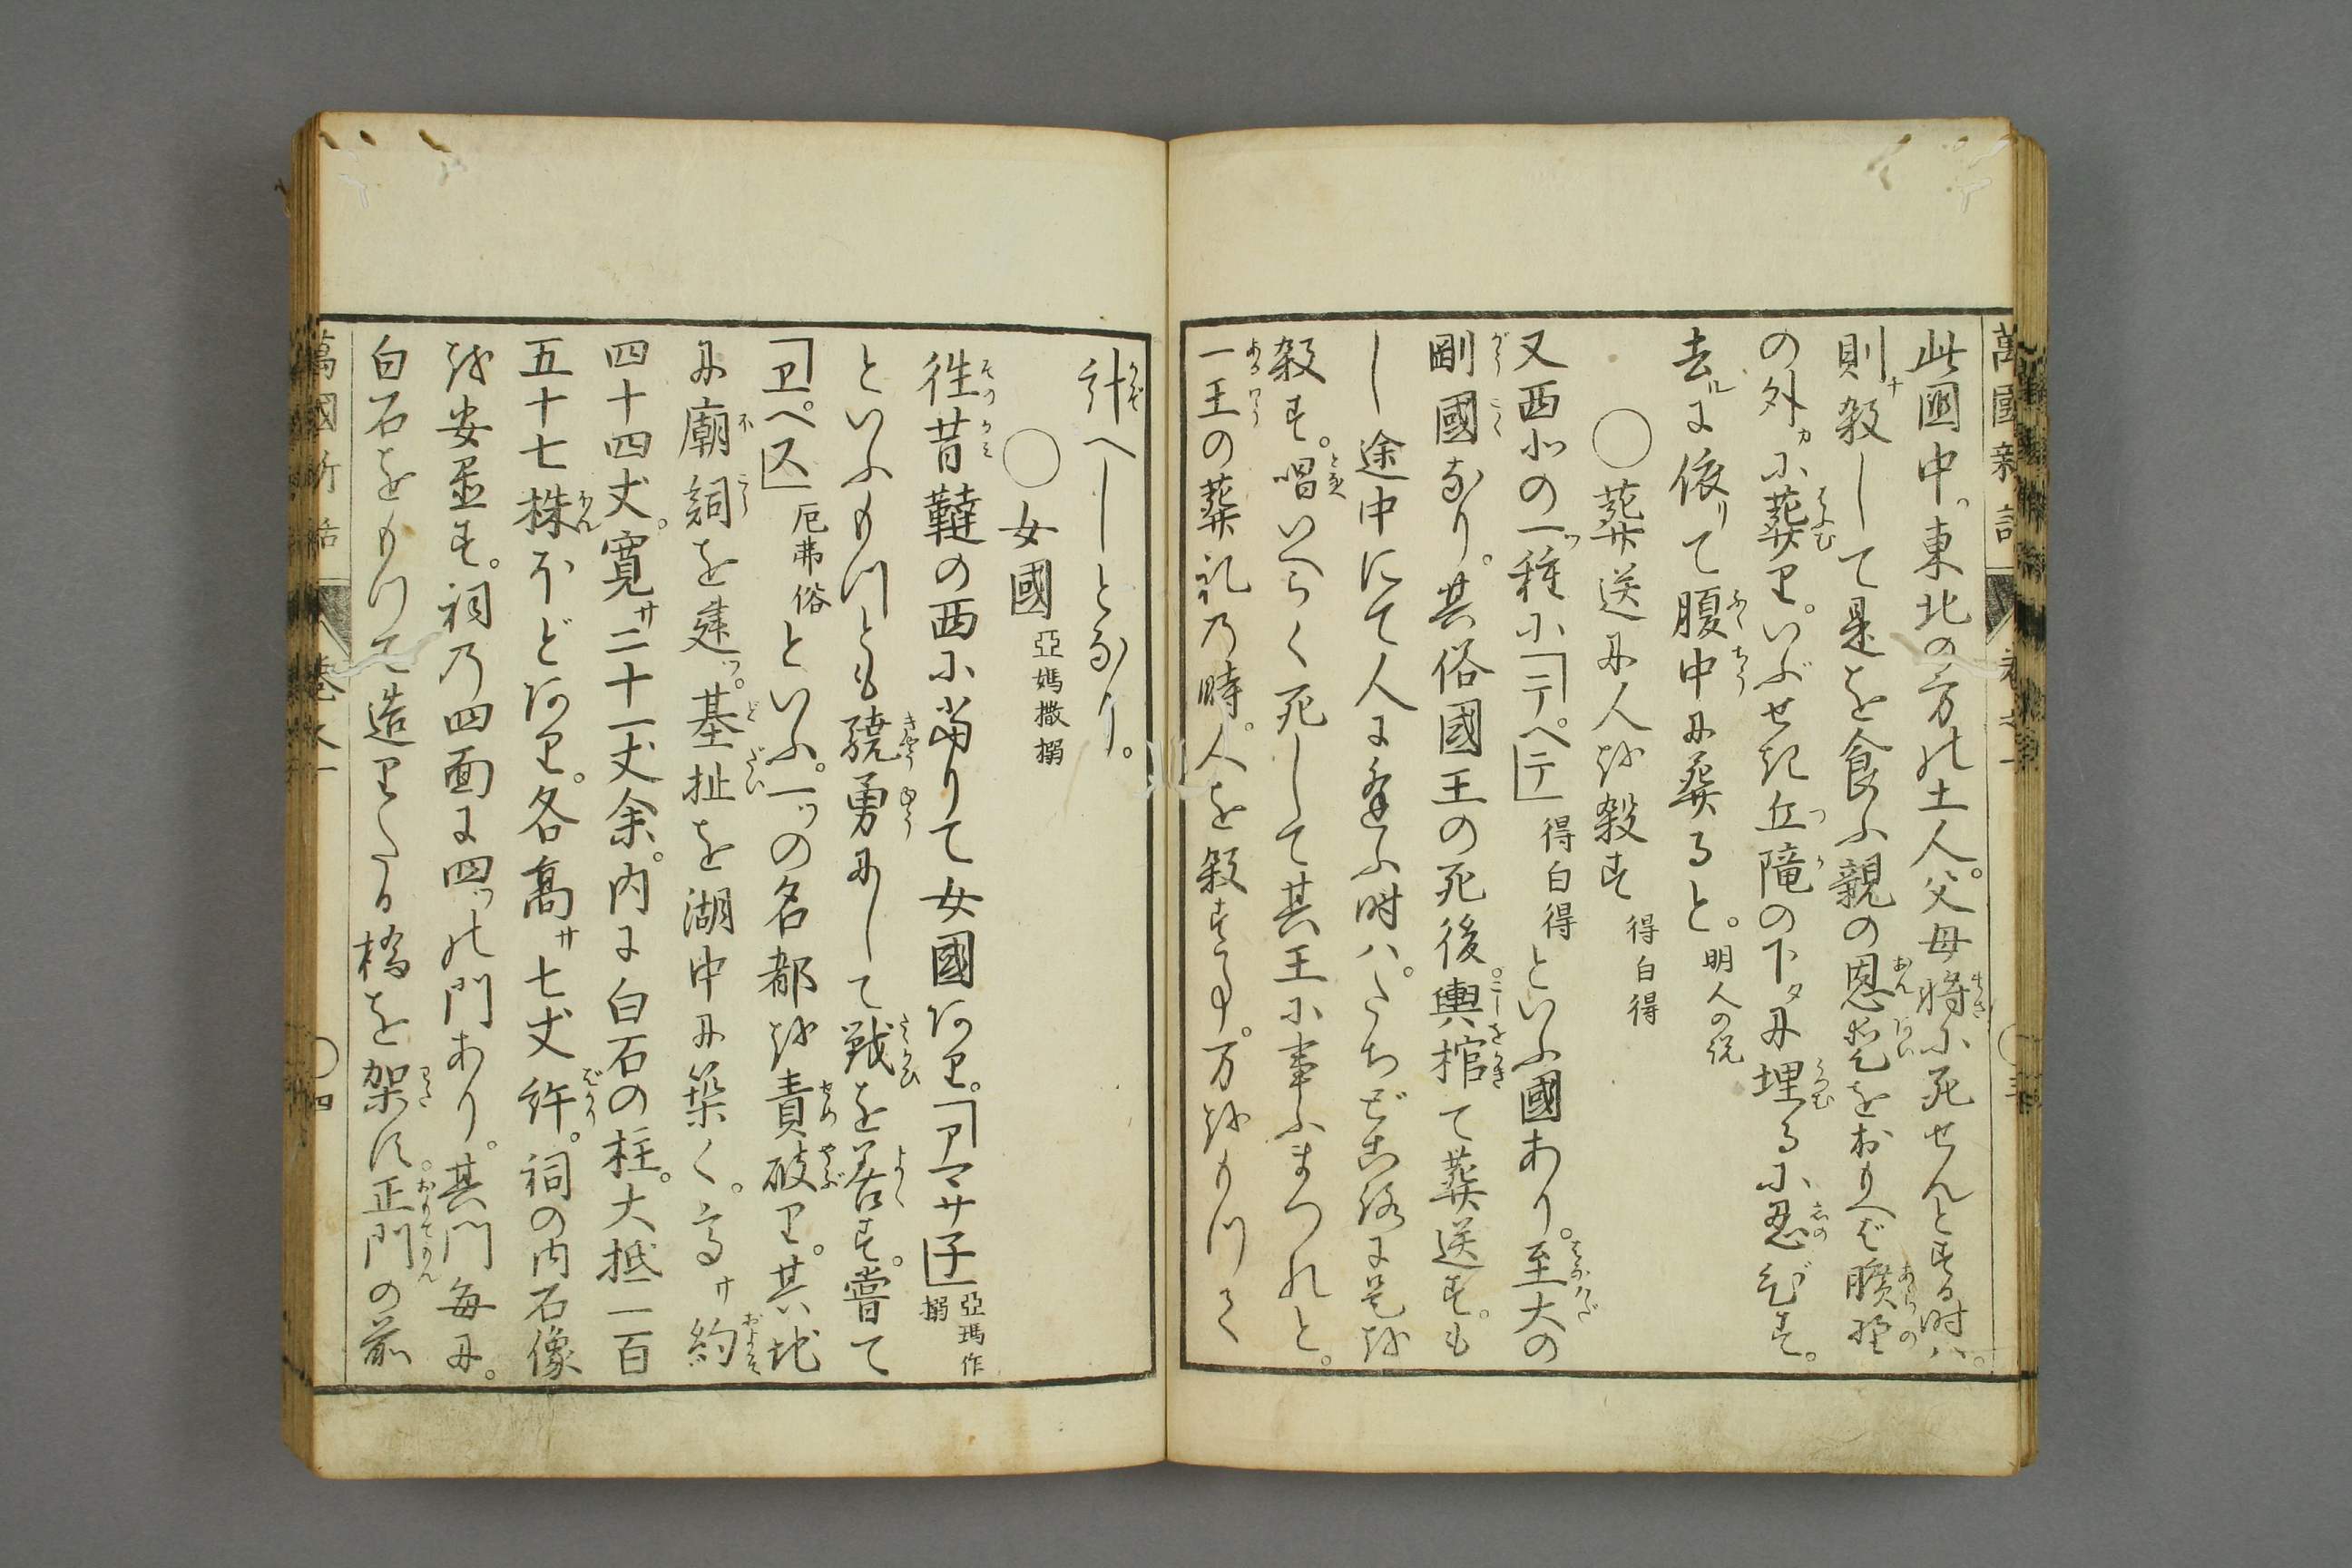 萬國新話
卷之一
〇三
此國中。東北の方の土人。父母將に死せんとする時ハ。
則チ殺して是を食ふ親の恩愛をおもへば曠野
の外カに葬り。いぶせき丘隴の下タに埋るに忍びず。
去ルに依リて腹中に葬ると。明人の說
〇葬送に人を殺す 得白得
又西北の一ツ種に「テベテ」得白得といふ國あり。至大の
剛國なり。其俗國王の死後。輿棺て葬送す。も
し途中にて人に逢ふ時ハ。たちどころに是を
殺す。唱いへらく死して其王に事ふまつれと。
一王の葬礼の時。人を殺すこと。万をもつて
計へしとなり。
〇女國 亞媽撒搦
徃昔韃の西に當りて女國あり。「アマサ子」亞瑪作搦
といふもつとも驍勇にして戰を善す。嘗て
「ヱペス」厄弗俗といふ。一ツの名都を責破り。其地
に廟祠を建ツ。基扯を湖中に築く。高サ約
四十四丈。寛サ二十一丈余。内に白石の柱。大抵一百
五十七株ほどあり。各高サ七丈許。祠の内石像
を安置す。祠の四面に四ツの門あり。其門毎に。
白石をもつて造りたる橋を架す。正門の前
萬國新話
卷之一
〇四